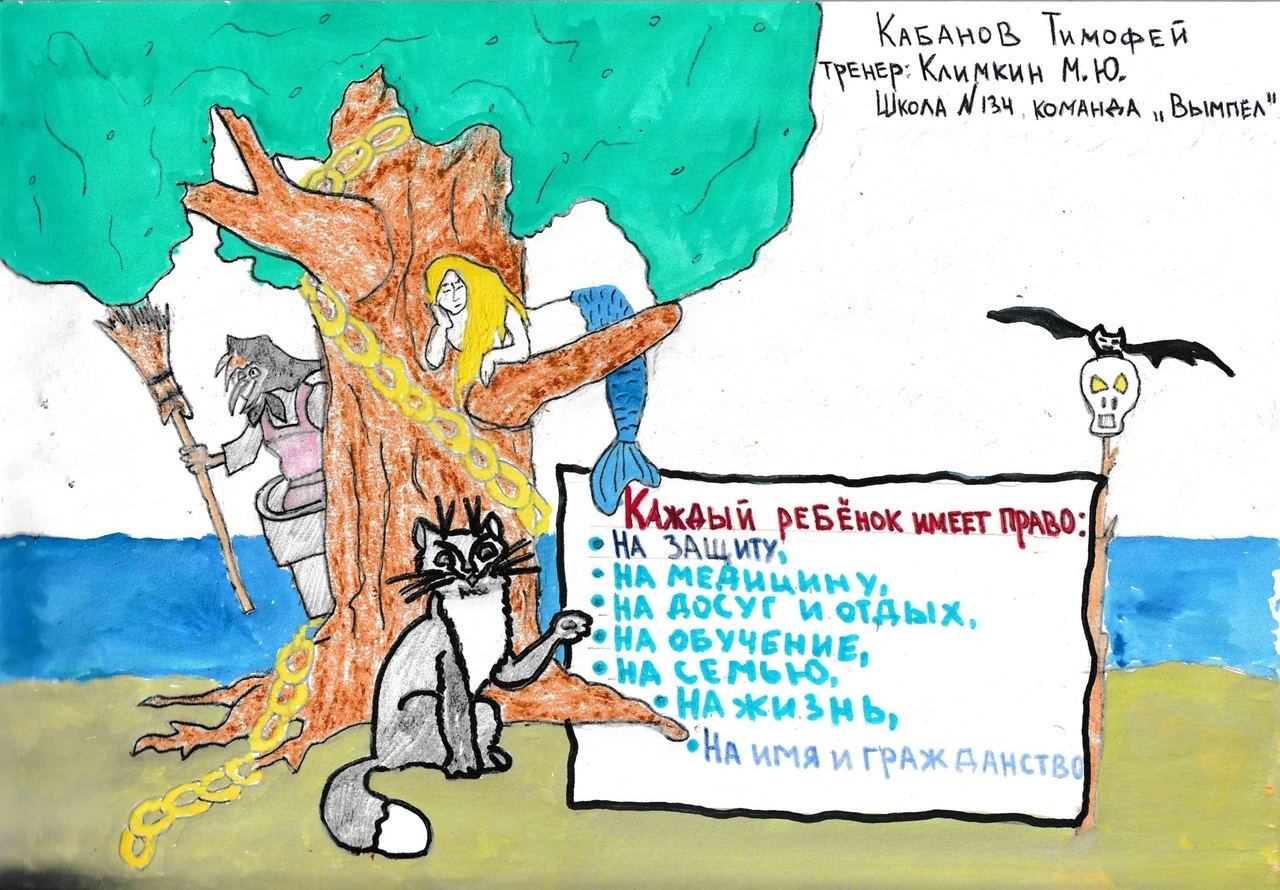 Кабанов Тимофей
тренер: Климкин М.Ю.
Школа №134, команда „Вымпел"
Каждый ребёнок имеет право:
• на защиту,
• на медицину,
• на досуг и отдых,
• на обучение,
• на семью,
• на жизнь,
• На имя и гражданство